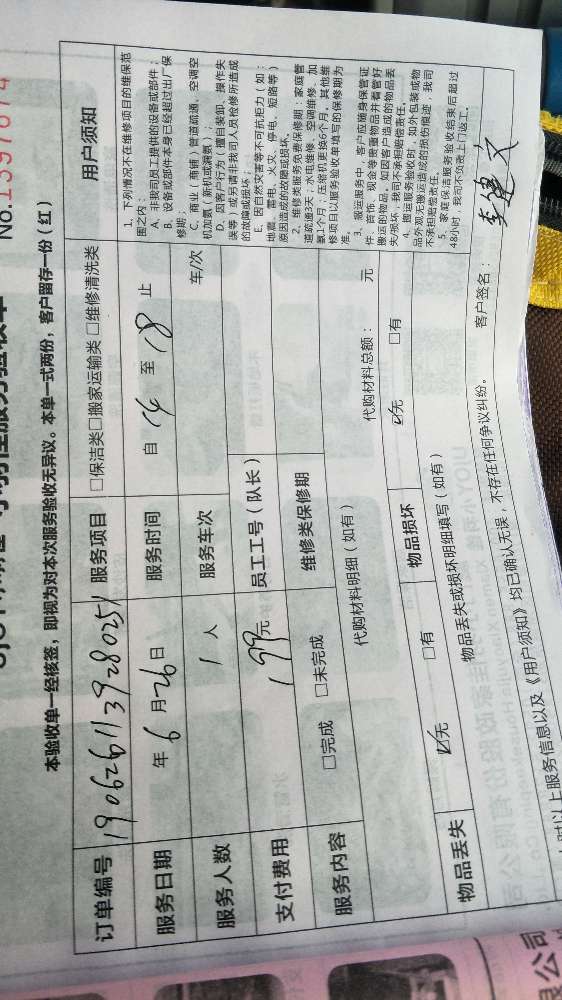 No.1397674
本验收单一经核签，即视为对本次服务验收无异议。本单一式两份，客户留存一份（红）
订单编号 1906261139280251 服务项目 □保洁类□搬家运输类□维修清洗类
服务日期 年6月26日 服务时间 自 至18止
服务人数 1人 服务车次 车/次
支付费用 199元 员工工号（队长）
服务内容 □完成 □未完成 维修类保修期
代购材料明细（如有） 代购材料总额： 元
物品丢失 ☑无 □有 物品损坏 ☑无 □有
物品丢失或损坏明细填写（如有）
用户须知
1、下列情况不在维修项目的维保范
围之内：
A、非我司员工提供的设备或部件；
B、设备或部件本身已经超过出厂保
修期；
C、商业（商铺）管道疏通、空调空
机加氨（新机或漏氨）；
D、因客户行为（擅自装卸、操作失
误等）或另请非我司人员检修所造成
的故障或损坏；
E、因自然灾害等不可抗拒力（如：
地震、雷电、火灾、停电、短路等）
原因造成的故障或损坏。
2、维修类服务免费保修期：家庭管
道疏通3天，水电维修、空调维修、加
氨1个月，压缩机更换6个月，其他维
修项目以服务验收单填写的保修期为
准。
3、搬运服务中，客户应随身保管证
件、首饰、现金等贵重物品并看管好
搬运的物品，如因客户造成的物品丢
失/损坏，我司不承担赔偿责任。
4、搬运服务验收时，如外包装或物
品外观无搬运造成的损伤痕迹，我司
不承担赔偿责任。
5、家庭保洁服务验收结束后超过
48小时，我司不负责上门返工。
时以上服务信息以及《用户须知》均已确认无误，不存在任何争议纠纷。
客户签名：李建文